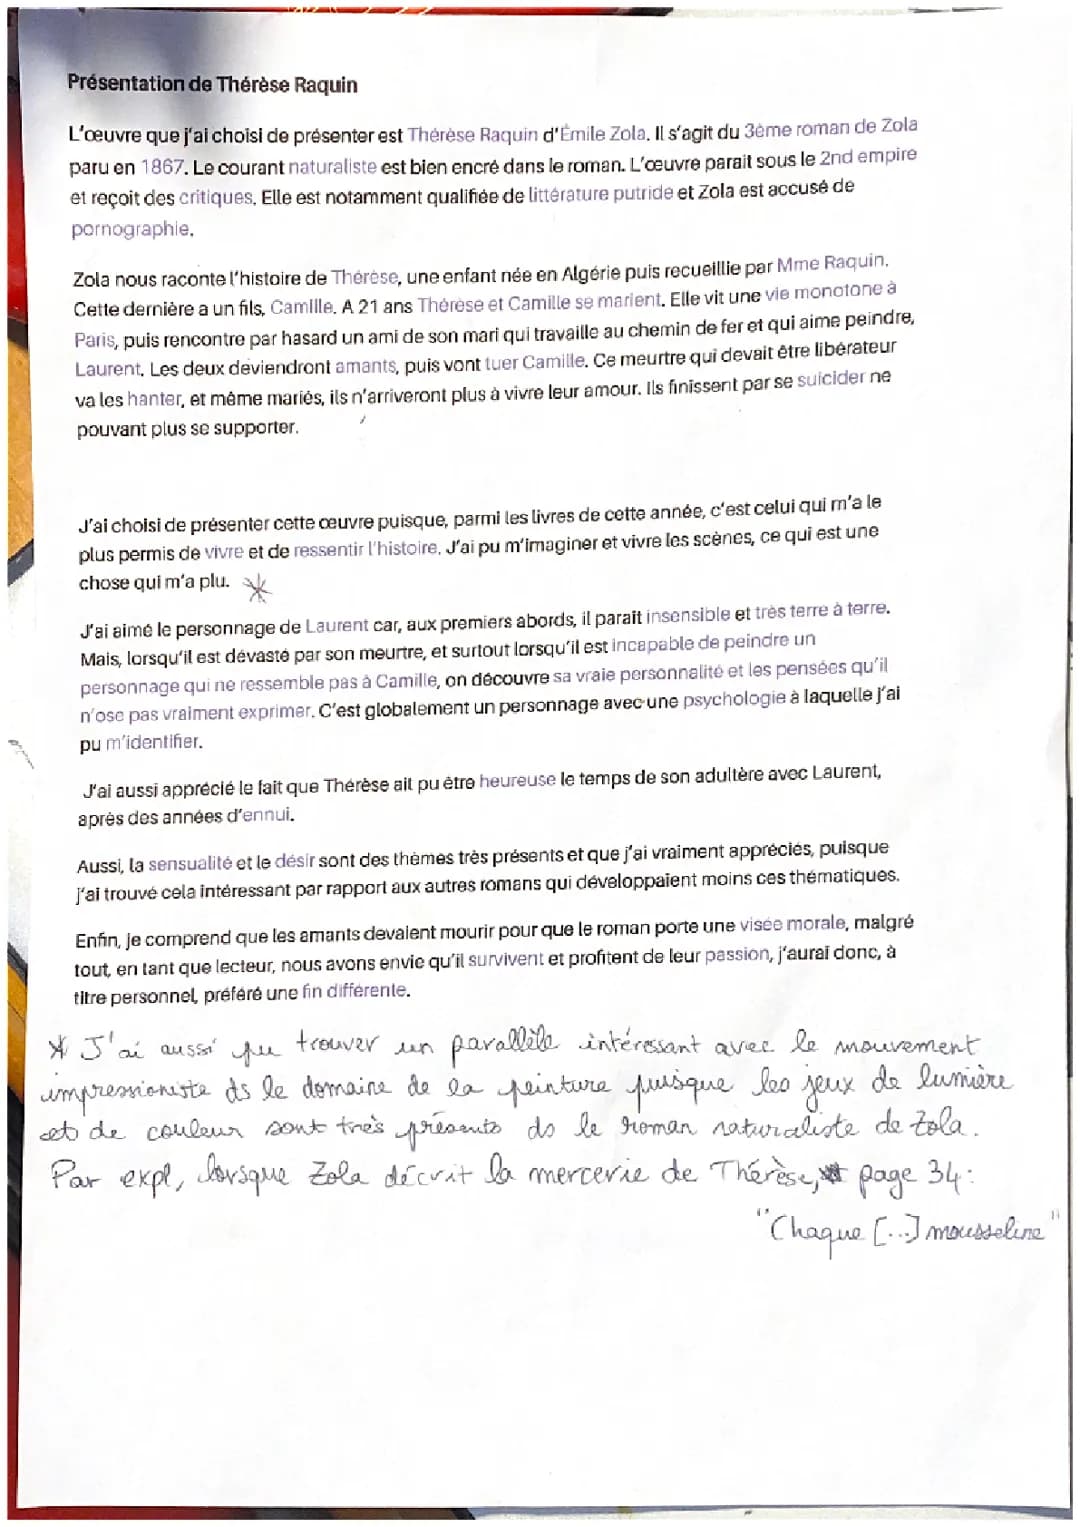 Présentation de Thérèse Raquin
L'œuvre que j'ai choisi de présenter est Thérèse Raquin d'Émile Zola. Il s'agit du 3ème roman de Zola
paru en 1867. Le courant naturaliste est bien encré dans le roman. L'œuvre parait sous le 2nd empire
et reçoit des critiques. Elle est notamment qualifiée de littérature putride et Zola est accusé de
pornographie.
Zola nous raconte l'histoire de Thérèse, une enfant née en Algérie puis recueillie par Mme Raquin.
Cette dernière a un fils, Camille. A 21 ans Thérèse et Camille se marient. Elle vit une vie monotone à
Paris, puis rencontre par hasard un ami de son mari qui travaille au chemin de fer et qui aime peindre,
Laurent. Les deux deviendront amants, puis vont tuer Camille. Ce meurtre qui devait être libérateur
va les hanter, et même mariés, ils n'arriveront plus à vivre leur amour. Ils finissent par se suicider ne
pouvant plus se supporter.
J'ai choisi de présenter cette œuvre puisque, parmi les livres de cette année, c'est celui qui m'a le
plus permis de vivre et de ressentir l'histoire. J'ai pu m'imaginer et vivre les scènes, ce qui est une
chose qui m'a plu. *
J'ai aimé le personnage de Laurent car, aux premiers abords, il parait insensible et très terre à terre.
Mais, lorsqu'il est dévasté par son meurtre, et surtout lorsqu'il est incapable de peindre un
personnage qui ne ressemble pas à Camille, on découvre sa vraie personnalité et les pensées qu'il
n'ose pas vraiment exprimer. C'est globalement un personnage avec une psychologie à laquelle j'ai
pu m'identifier.
J'ai aussi apprécié le fait que Thérèse ait pu être heureuse le temps de son adultère avec Laurent,
après des années d'ennui.
Aussi, la sensualité et le désir sont des thèmes très présents et que j'ai vraiment appréciés, puisque
j'ai trouvé cela intéressant par rapport aux autres romans qui développaient moins ces thématiques.
Enfin, je comprend que les amants devaient mourir pour que le roman porte une visée morale, malgré
tout, en tant que lecteur, nous avons envie qu'il survivent et profitent de leur passion, j'aurai donc, à
titre personnel, préféré une fin différente.
* J'ai aussi pu trouver un parallèle intéressant avec le mouvement
impressioniste ds le domaine de la peinture puisque les jeux de lumière
et de couleur sont très présents ds le roman naturaliste de Zola.
Par expl, lorsque Zola décrit la mercerie de Thérèse, page 34:
"Chaque [...] mousseline"